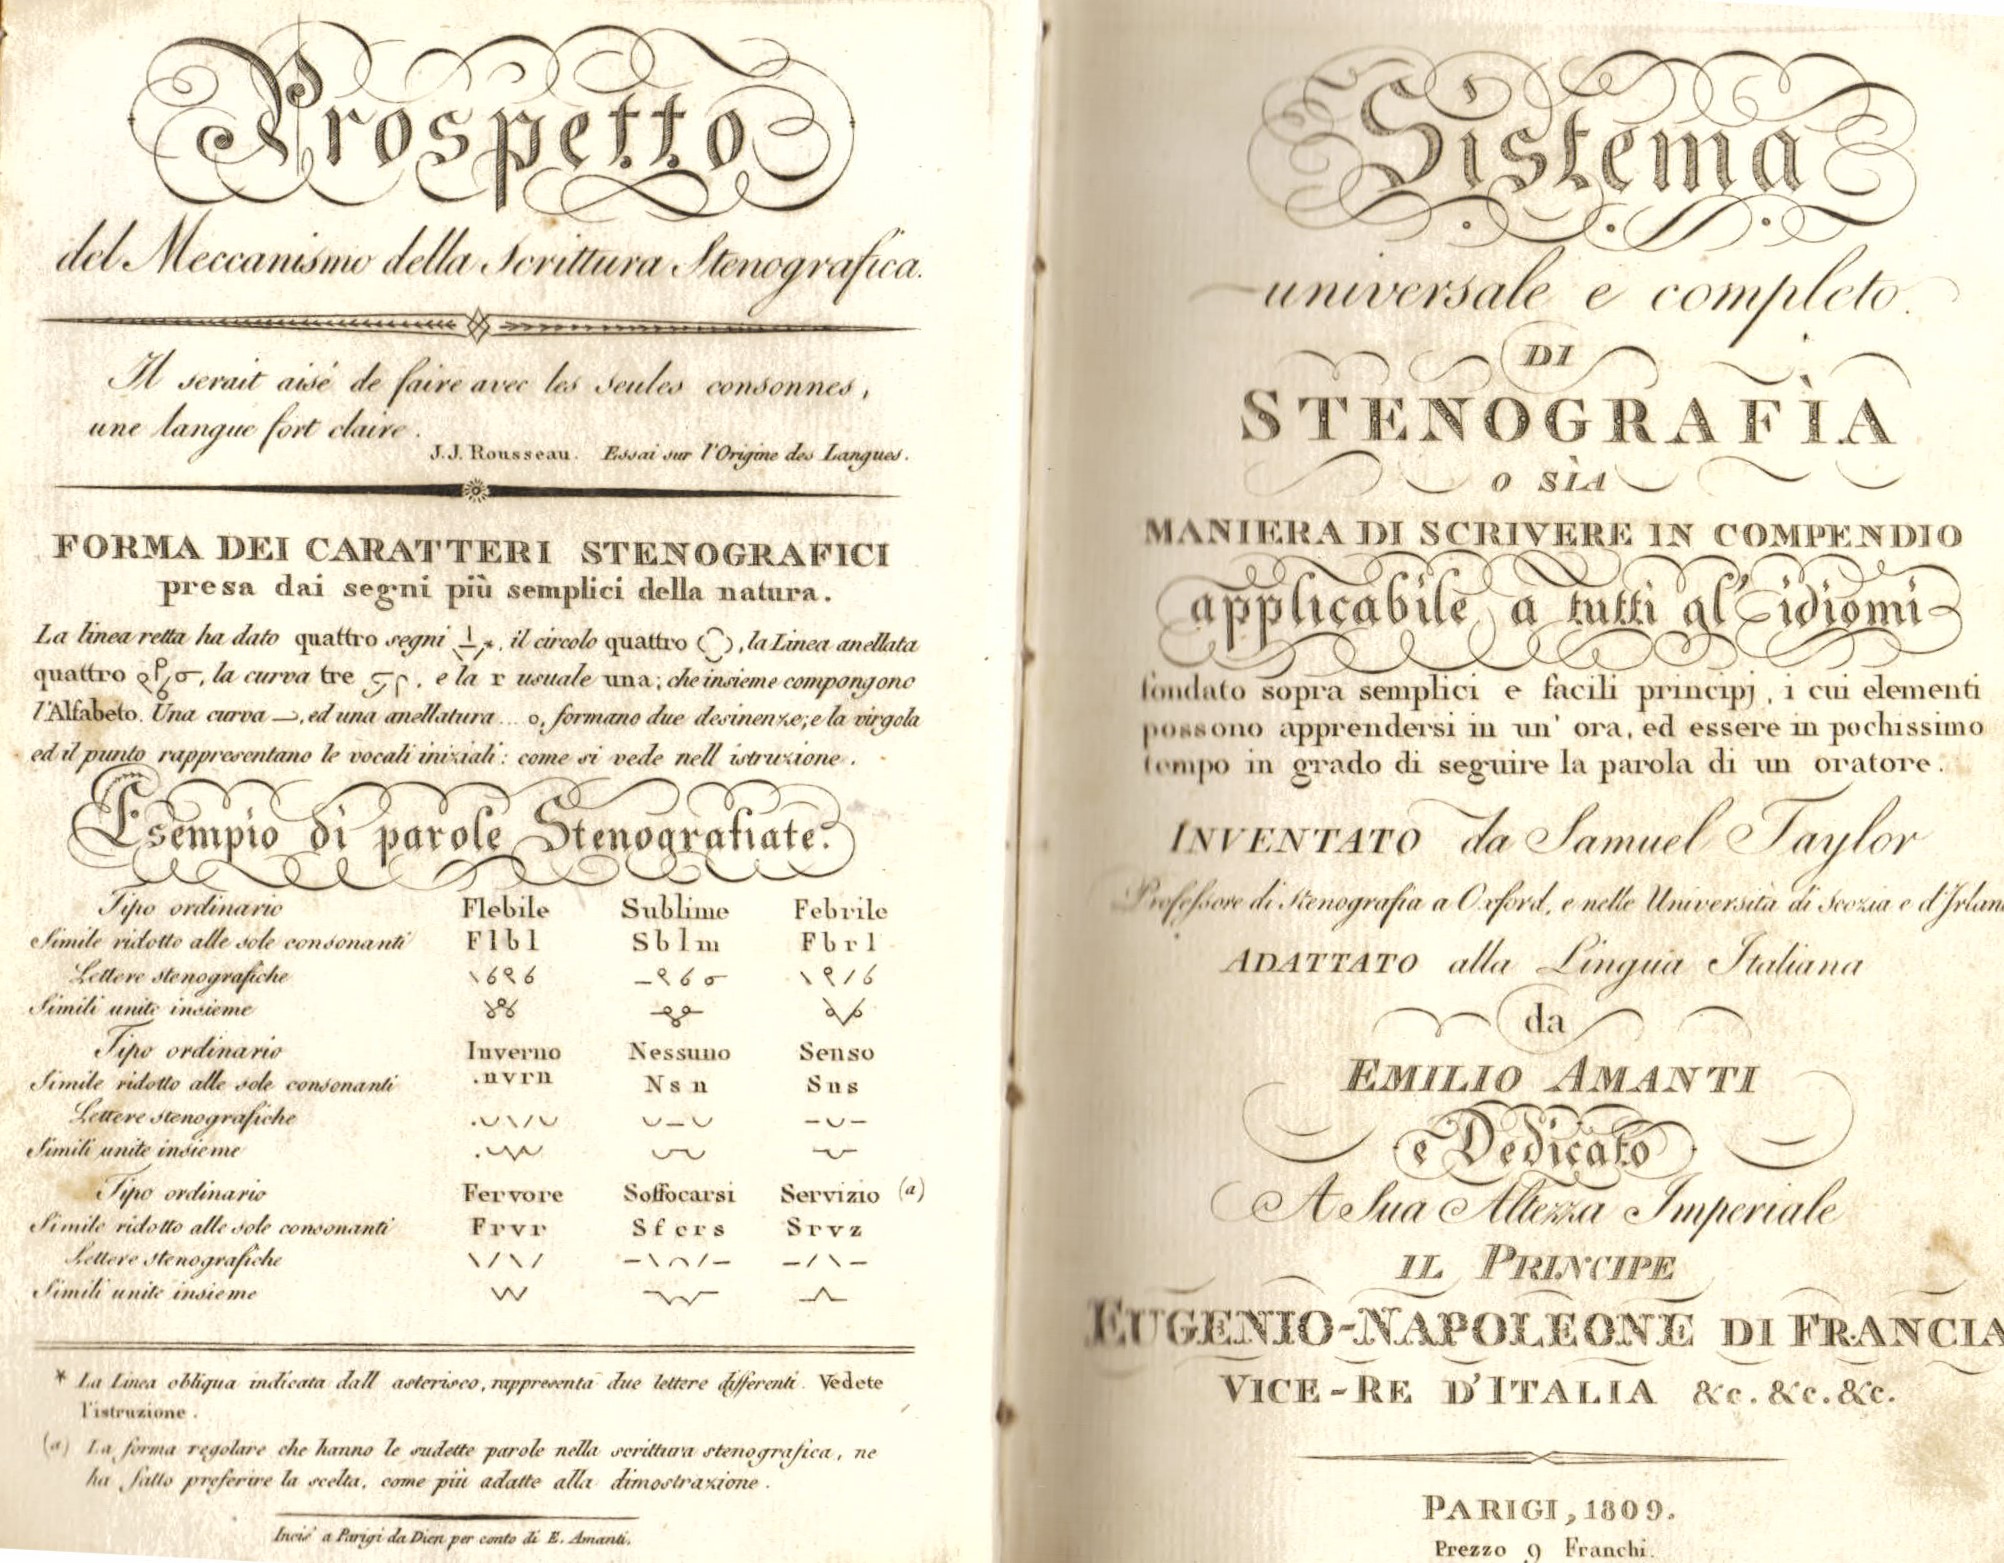 Prospetto
del Meccanismo della Scrittura Stenografica.
Il serait aisé de faire avec les seules consonnes,
une langue fort claire.
J.J. Rousseau. Essai sur l'Origine des Langues.
FORMA DEI CARATTERI STENOGRAFICI
presa dai segni più semplici della natura.
La linea retta ha dato quattro segni , il circolo quattro , la Linea anellata
quattro , la curva tre , e la r usuale una; che insieme compongono
l'Alfabeto. Una curva , ed una anellatura... o, formano due desinenze; e la virgola
ed il punto rappresentano le vocali iniziali: come si vede nell istruzione.
Esempio di parole Stenografiate.
Tipo ordinario Flebile Sublime Febrile
Simile ridotto alle sole consonanti Flbl Sblm Fbrl
Lettere stenografiche
Simili unite insieme
Tipo ordinario Inverno Nessuno Senso
Simile ridotto alle sole consonanti .nvrn Nsn Sns
Lettere stenografiche
Simili unite insieme
Tipo ordinario Fervore Soffocarsi Servizio (a)
Simile ridotto alle sole consonanti Frvr Sfcrs Srvz
Lettere stenografiche
Simili unite insieme
* La Linea obliqua indicata dall asterisco, rappresenta due lettere differenti. Vedete
l'istruzione.
(a) La forma regolare che hanno le sudette parole nella scrittura stenografica, ne
ha fatto preferire la scelta, come più adatte alla dimostrazione.
Incis' a Parigi da Dien per conto di E. Amanti.
Sistema
universale e completo.
DI
STENOGRAFÌA
O SÌA
MANIERA DI SCRIVERE IN COMPENDIO
applicabile a tutti gl' idiomi
fondato sopra semplici e facili principj, i cui elementi
possono apprendersi in un' ora, ed essere in pochissimo
tempo in grado di seguire la parola di un oratore.
INVENTATO da Samuel Taylor
Professore di Stenografia a Oxford, e nelle Università di Scozia e d'Irlan
ADATTATO alla Lingua Italiana
da
EMILIO AMANTI
e Dedicato
A Sua Altezza Imperiale
IL PRINCIPE
EUGENIO-NAPOLEONE DI FRANCIA
VICE-RE D'ITALIA &c. &c. &c.
PARIGI, 1809.
Prezzo 9 Franchi.